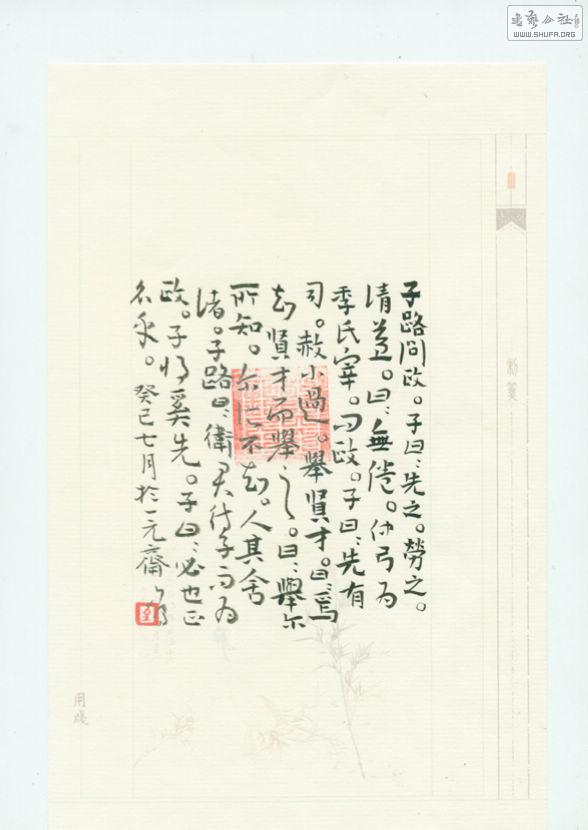 子路問政。子曰:先之。勞之。
請益。曰:無倦。仲弓為
季氏宰。問政。子曰:先有
司。赦小過。舉賢才。曰:焉
知賢才而舉之。曰:舉尔
所知。尔所不知。人其舍
諸。子路曰:衛君待子而為
政。子將奚先。子曰:必也正
名乎。癸巳七月於一元齋
用牋
WWW.SHUFA.ORG